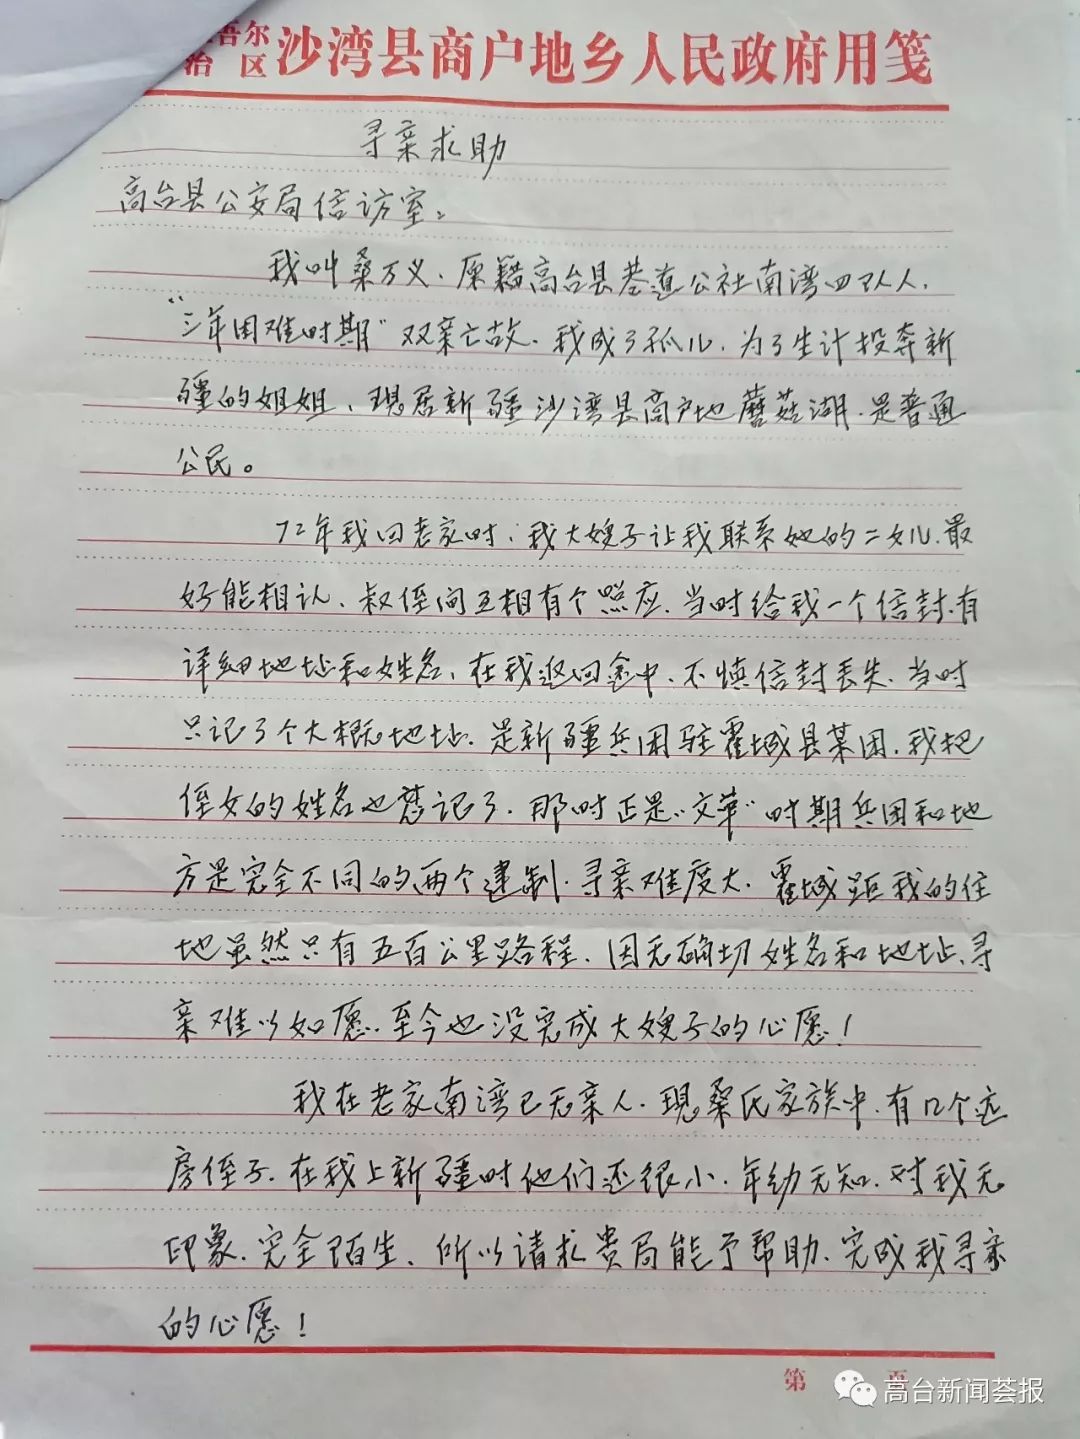 吾尔
治区 沙湾县商户地乡人民政府用笺
寻亲求助
高台县公安局信访室:
我叫桑万义、原籍高台县巷道公社南湾四队人,
“三年困难时期”双亲亡故、我成了孤儿、为了生计投奔新
疆的姐姐、现居新疆沙湾县商户地蘑菇湖.是普通
公民。
72年我回老家时;我大嫂子让我联系她的二女儿.最
好能相认、叔侄间互相有个照应、当时给我一个信封.有
详细地址和姓名、在我返回途中、不慎信封丢失、当时
只记了个大概地址、是新疆兵团驻霍城县某团、我把
侄女的姓名也忘记了、那时正是“文革”时期兵团和地
方是完全不同的两个建制、寻亲难度大、霍城距我的住
地虽然只有五百公里路程、因无确切姓名和地址、寻
亲难以如愿、至今也没完成大嫂子的心愿!
我在老家南湾已无亲人、现桑氏家族中、有几个远
房侄子、在我上新疆时他们还很小、年幼无知、对我无
印象、完全陌生、所以请求贵局能予帮助、完成我寻亲
的心愿!
第 页
高台新闻荟报